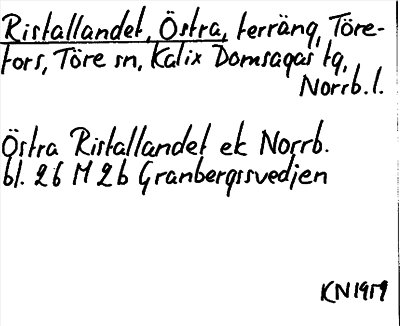 Ristallandet, Östra, terräng, Töre-
fors, Töre sn, Kalix Domsagas tg,
Norrb. l.
Östra Ristallandet ek Norrb.
bl. 26 M 2b Granbergssvedjen